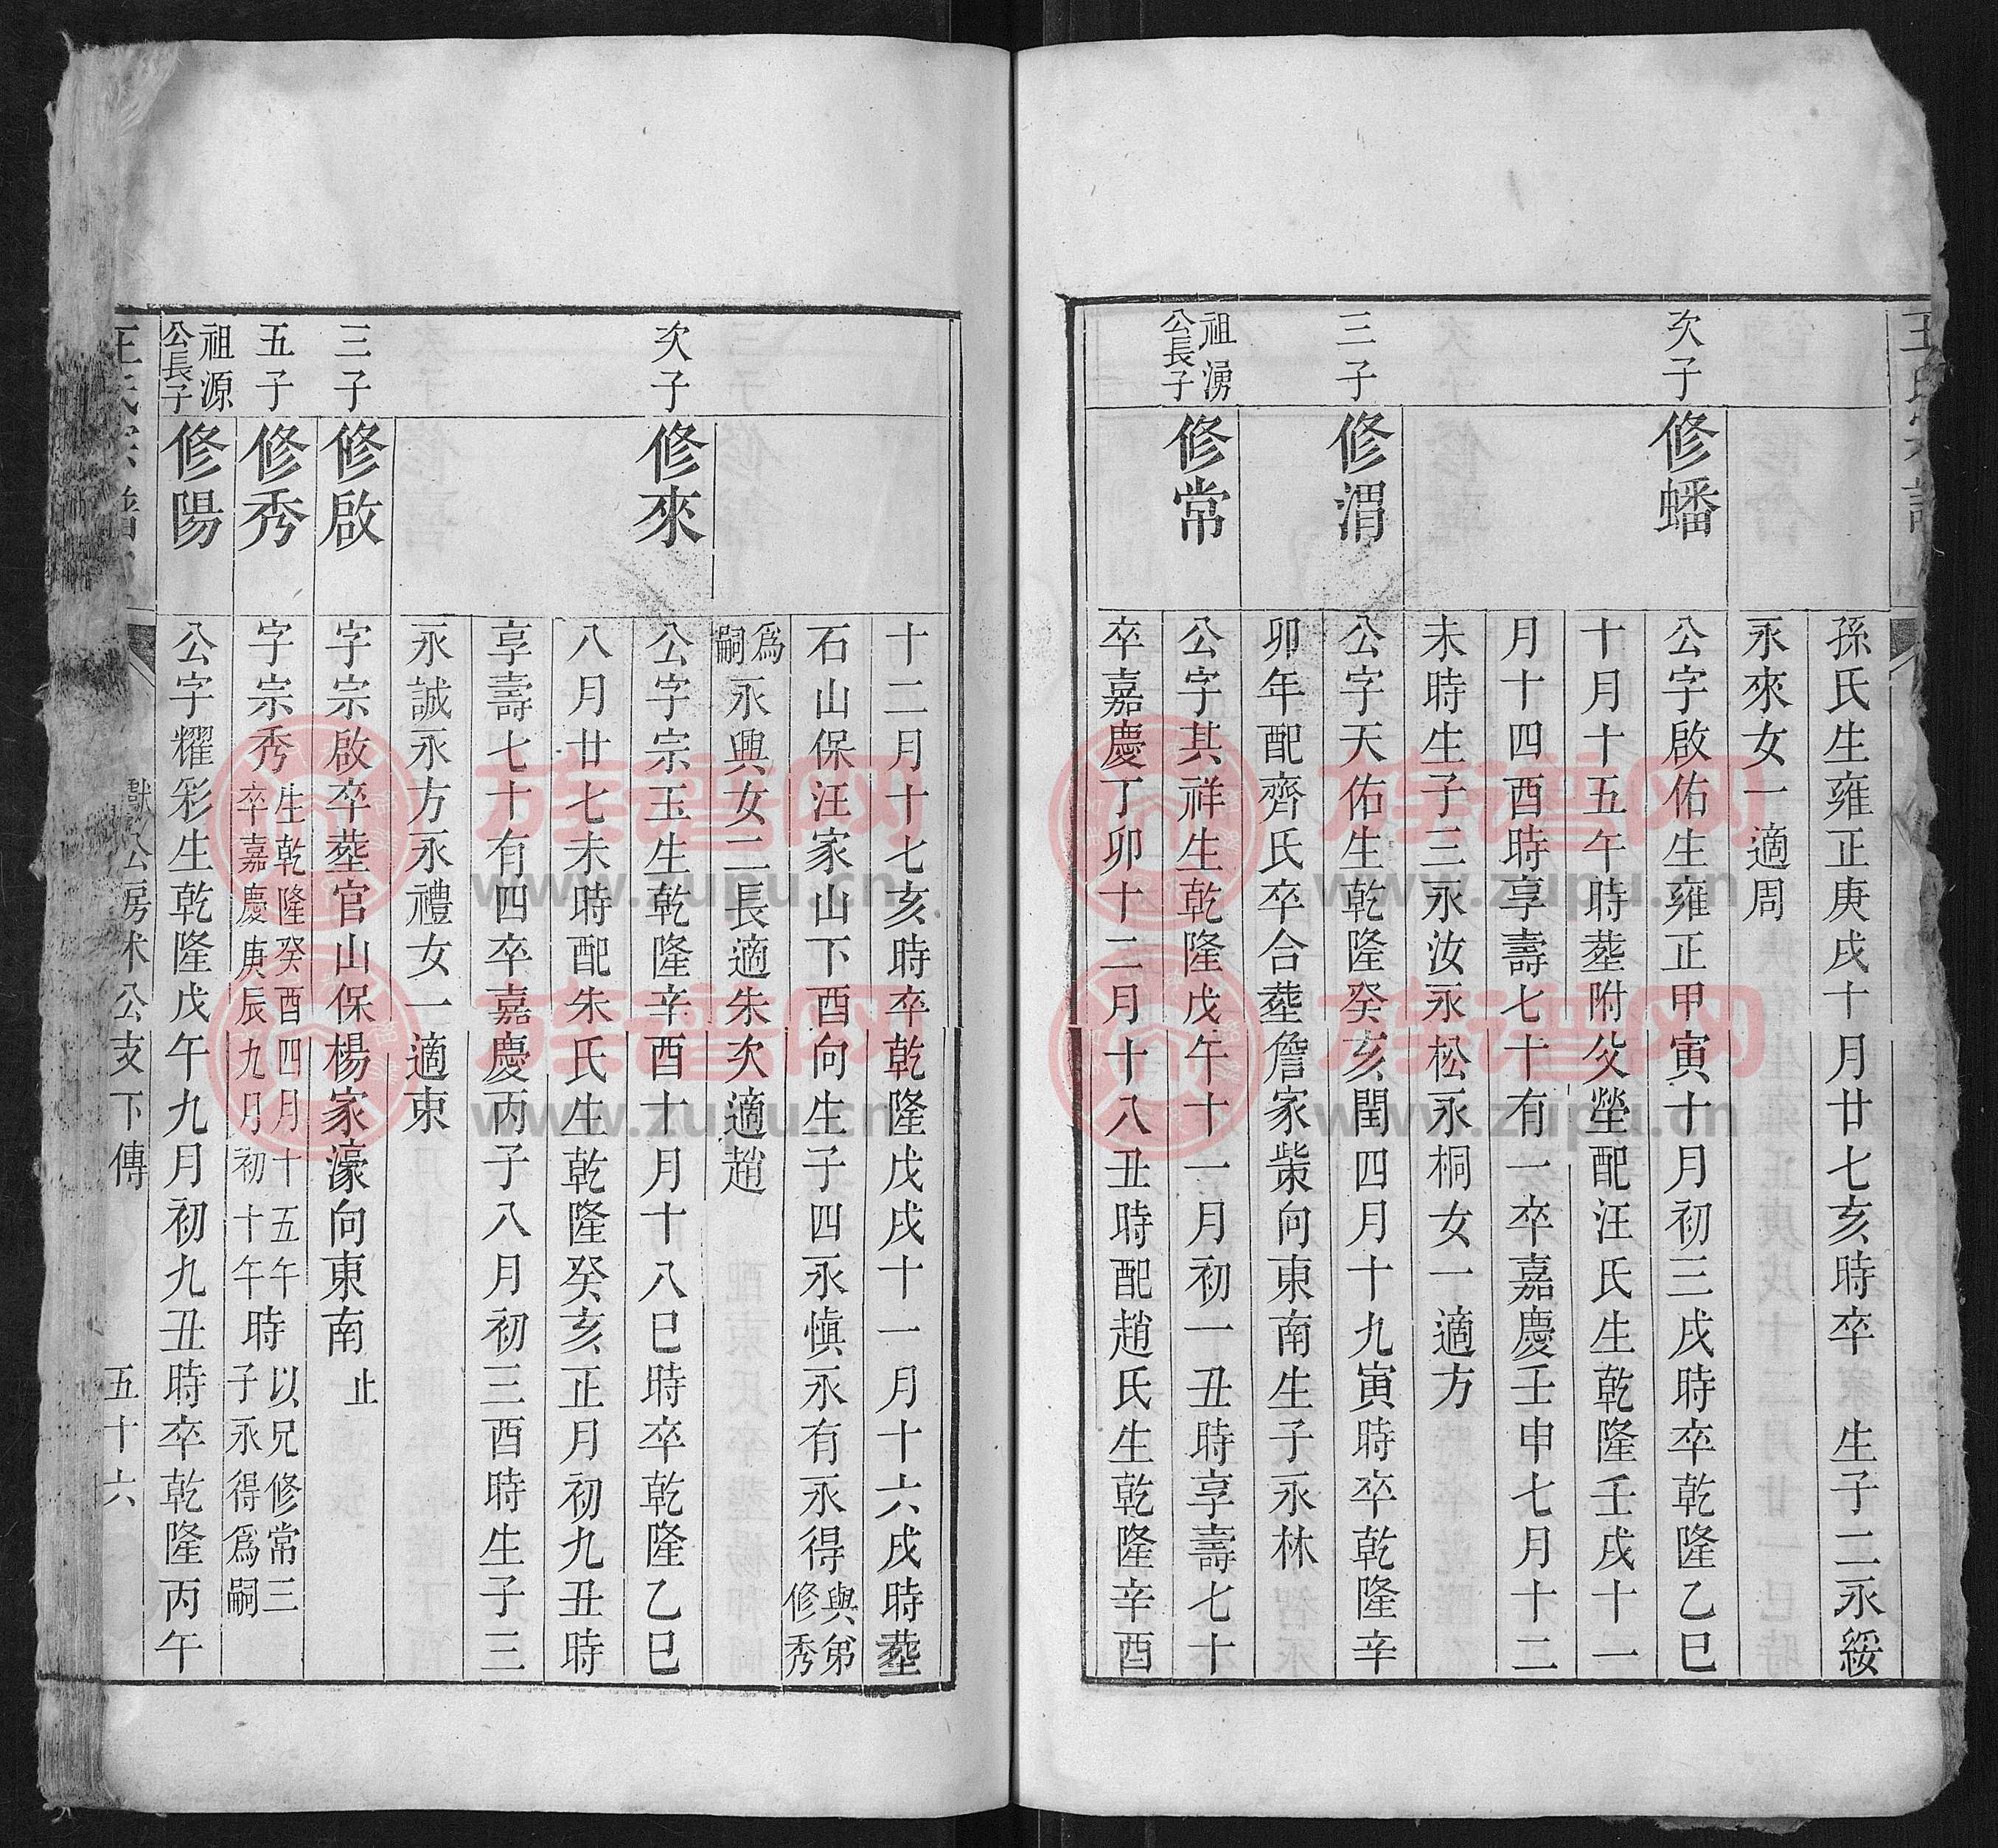 孫氏生雍正庚戌十月廿七亥時卒 生子二永綏
永來女一適周
次子 修蟠 公字啟佑生雍正甲寅十月初三戌時卒乾隆乙巳
十月十五午時塟附父塋配汪氏生乾隆壬戌十一
月十四酉時享壽七十有一卒嘉慶壬申七月十二
未時生子三永汝永松永桐女一適方
三子 修渭 公字天佑生乾隆癸亥閏四月十九寅時卒乾隆辛
卯年配齊氏卒合塟詹家柴向東南生子永林
祖湧公長子 修常 公字其祥生乾隆戊午十一月初一丑時享壽七十
卒嘉慶丁卯十二月十八丑時配趙氏生乾隆辛酉
十二月十七亥時卒乾隆戊戌十一月十六戌時塟
石山保汪家山下酉向生子四永慎永有永得與弟修秀
為嗣永興女二長適朱次適趙
次子 修來 公字宗玉生乾隆辛酉十月十八巳時卒乾隆乙巳
八月廿七未時配朱氏生乾隆癸亥正月初九丑時
享壽七十有四卒嘉慶丙子八月初三酉時生子三
永誠永方永禮女一適束
三子 修啟 字宗啟卒塟官山保楊家濠向東南止
五子 修秀 字宗秀生乾隆癸酉四月十五午卒嘉慶庚辰九月初十午時以兄修常三子永得為嗣
祖源公長子 修陽 公字耀彩生乾隆戊午九月初九丑時卒乾隆丙午
王氏宗譜 公房 公支下傳 五十六
族谱网
www.zupu.cn
族谱网
www.zupu.cn
族谱网
www.zupu.cn
族谱网
www.zupu.cn